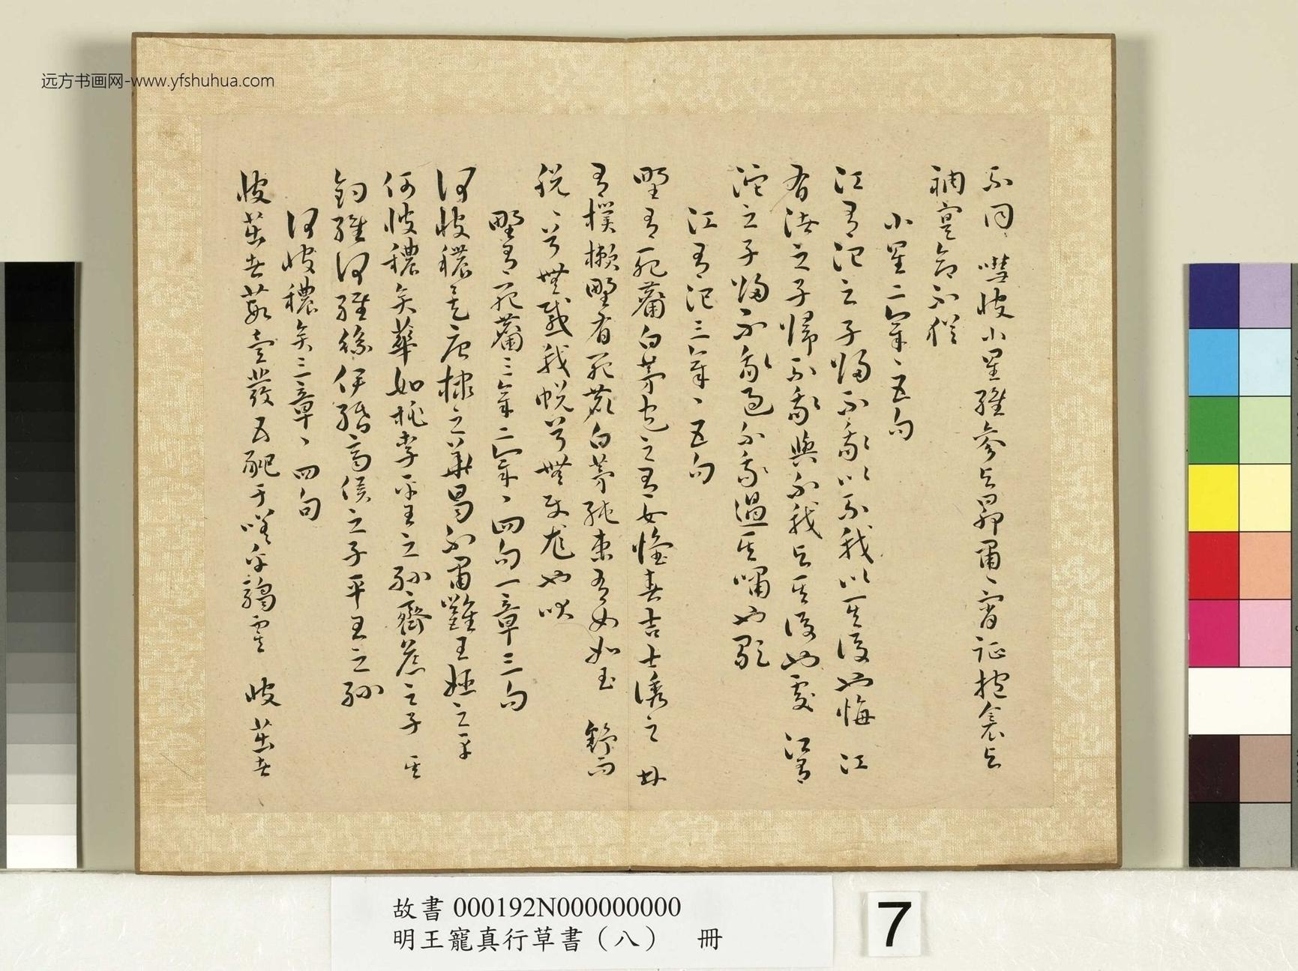 不同 嘒彼小星維參與昴肅〻宵征抱衾與
裯寔命不猶
小星二章〻五句
江有汜之子歸不我以不我以其後也悔 江
有渚之子歸不我與不我與其後也處 江有
沱之子歸不我過不我過其嘯也歌
江有汜三章〻五句
野有死麕白茅包之有女懷春吉士誘之 林
有樸樕野有死鹿白茅純束有女如玉 舒而
脫〻兮無感我帨兮無使尨也吠
野有死麕三章二章〻四句一章三句
何彼穠矣唐棣之華曷不肅雝王姬之車
何彼穠矣華如桃李平王之孫齊侯之子 其
釣維何維絲伊緡齊侯之子平王之孫
何彼穠矣三章〻四句
彼茁者葭壹發五豝于嗟乎騶虞 彼茁者
远方书画网-www.yfshuhua.com
故書 000192N000000000
明王寵真行草書（八） 冊
7